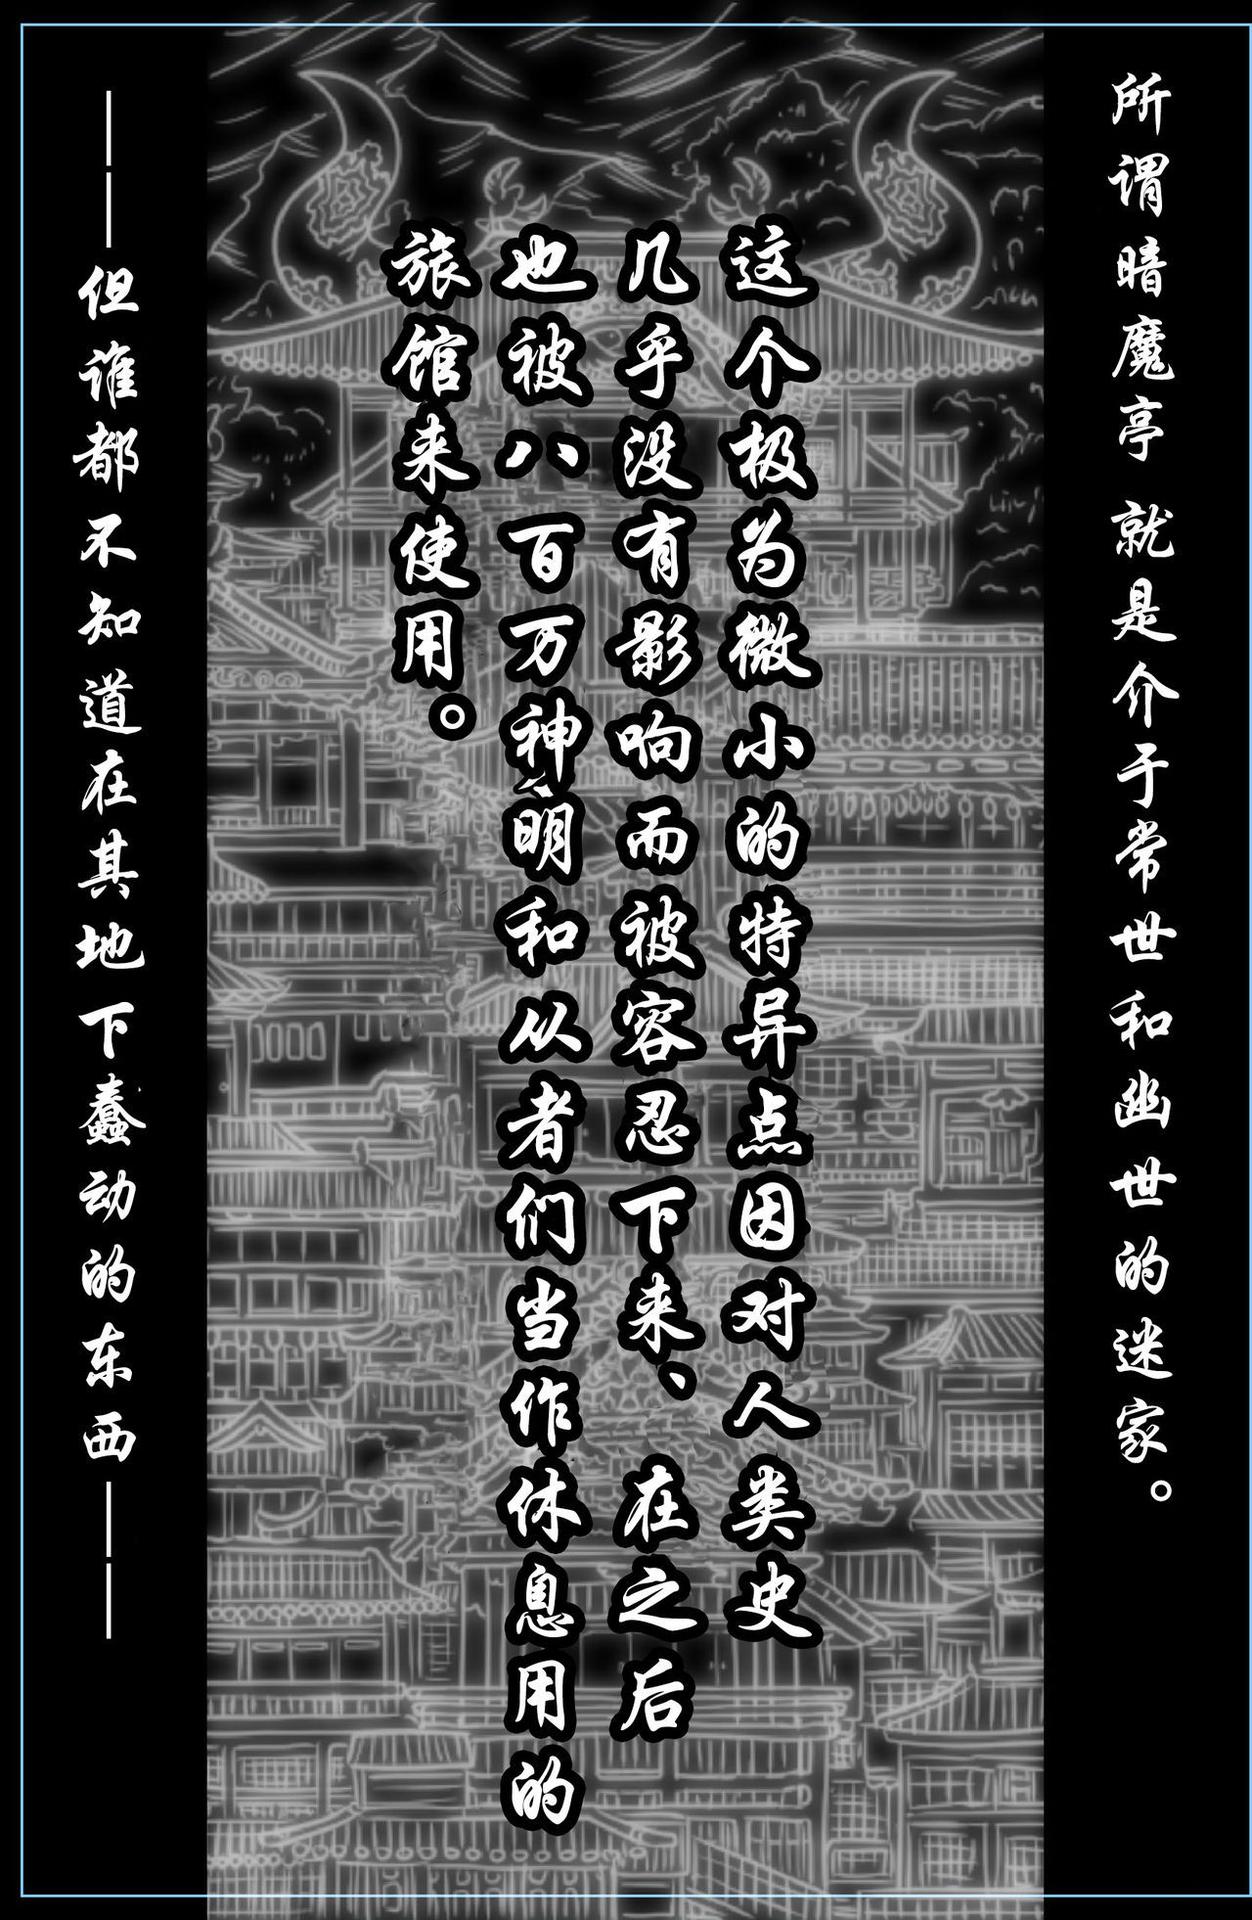 所谓暗魔亭 就是介于常世和幽世的迷家。
这个极为微小的特异点因对人类史
几乎没有影响而被容忍下来、 在之后
也被八百万神明和从者们当作休息用的
旅馆来使用。
——但谁都不知道在其地下蠢动的东西——